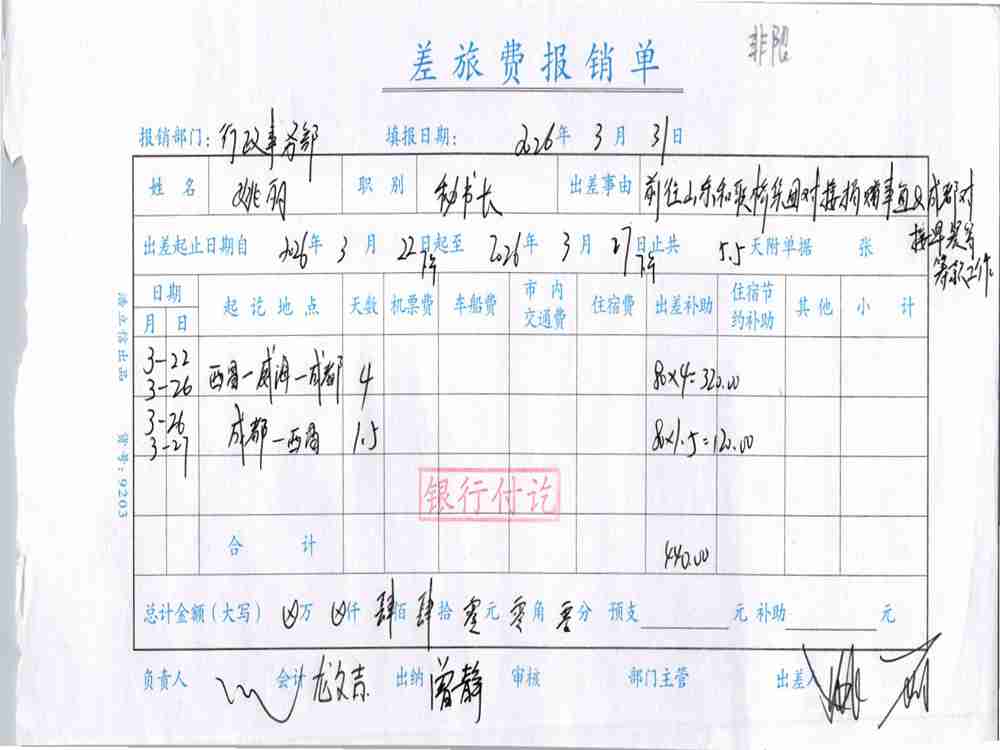 非限
差旅费报销单
报销部门：行政事务部 填报日期： 2026年 3月 31日
姓名 姚丽 职别 秘书长 出差事由 前往山东和联桥集团对接捐赠事宜及成都对
接
等工作
出差起止日期自 2026年 3月 22日起至 2026年 3月 27日止共 5.5天附单据 张
下午 下午
日期 起讫地点 天数 机票费 车船费 市内交通费 住宿费 出差补助 住宿节约补助 其他 小计
月 日
3-22
3-26 西昌-威海-成都 4 80×4=320.00
3-26
3-27 成都-西昌 1.5 80×1.5=120.00
银行付讫
合计 440.00
总计金额（大写） 万 仟 肆佰 肆拾 零元 零角 零分 预支 元 补助 元
负责人 会计 龙文吉 出纳 曾静 审核 部门主管 出差人 姚丽
货号：9203